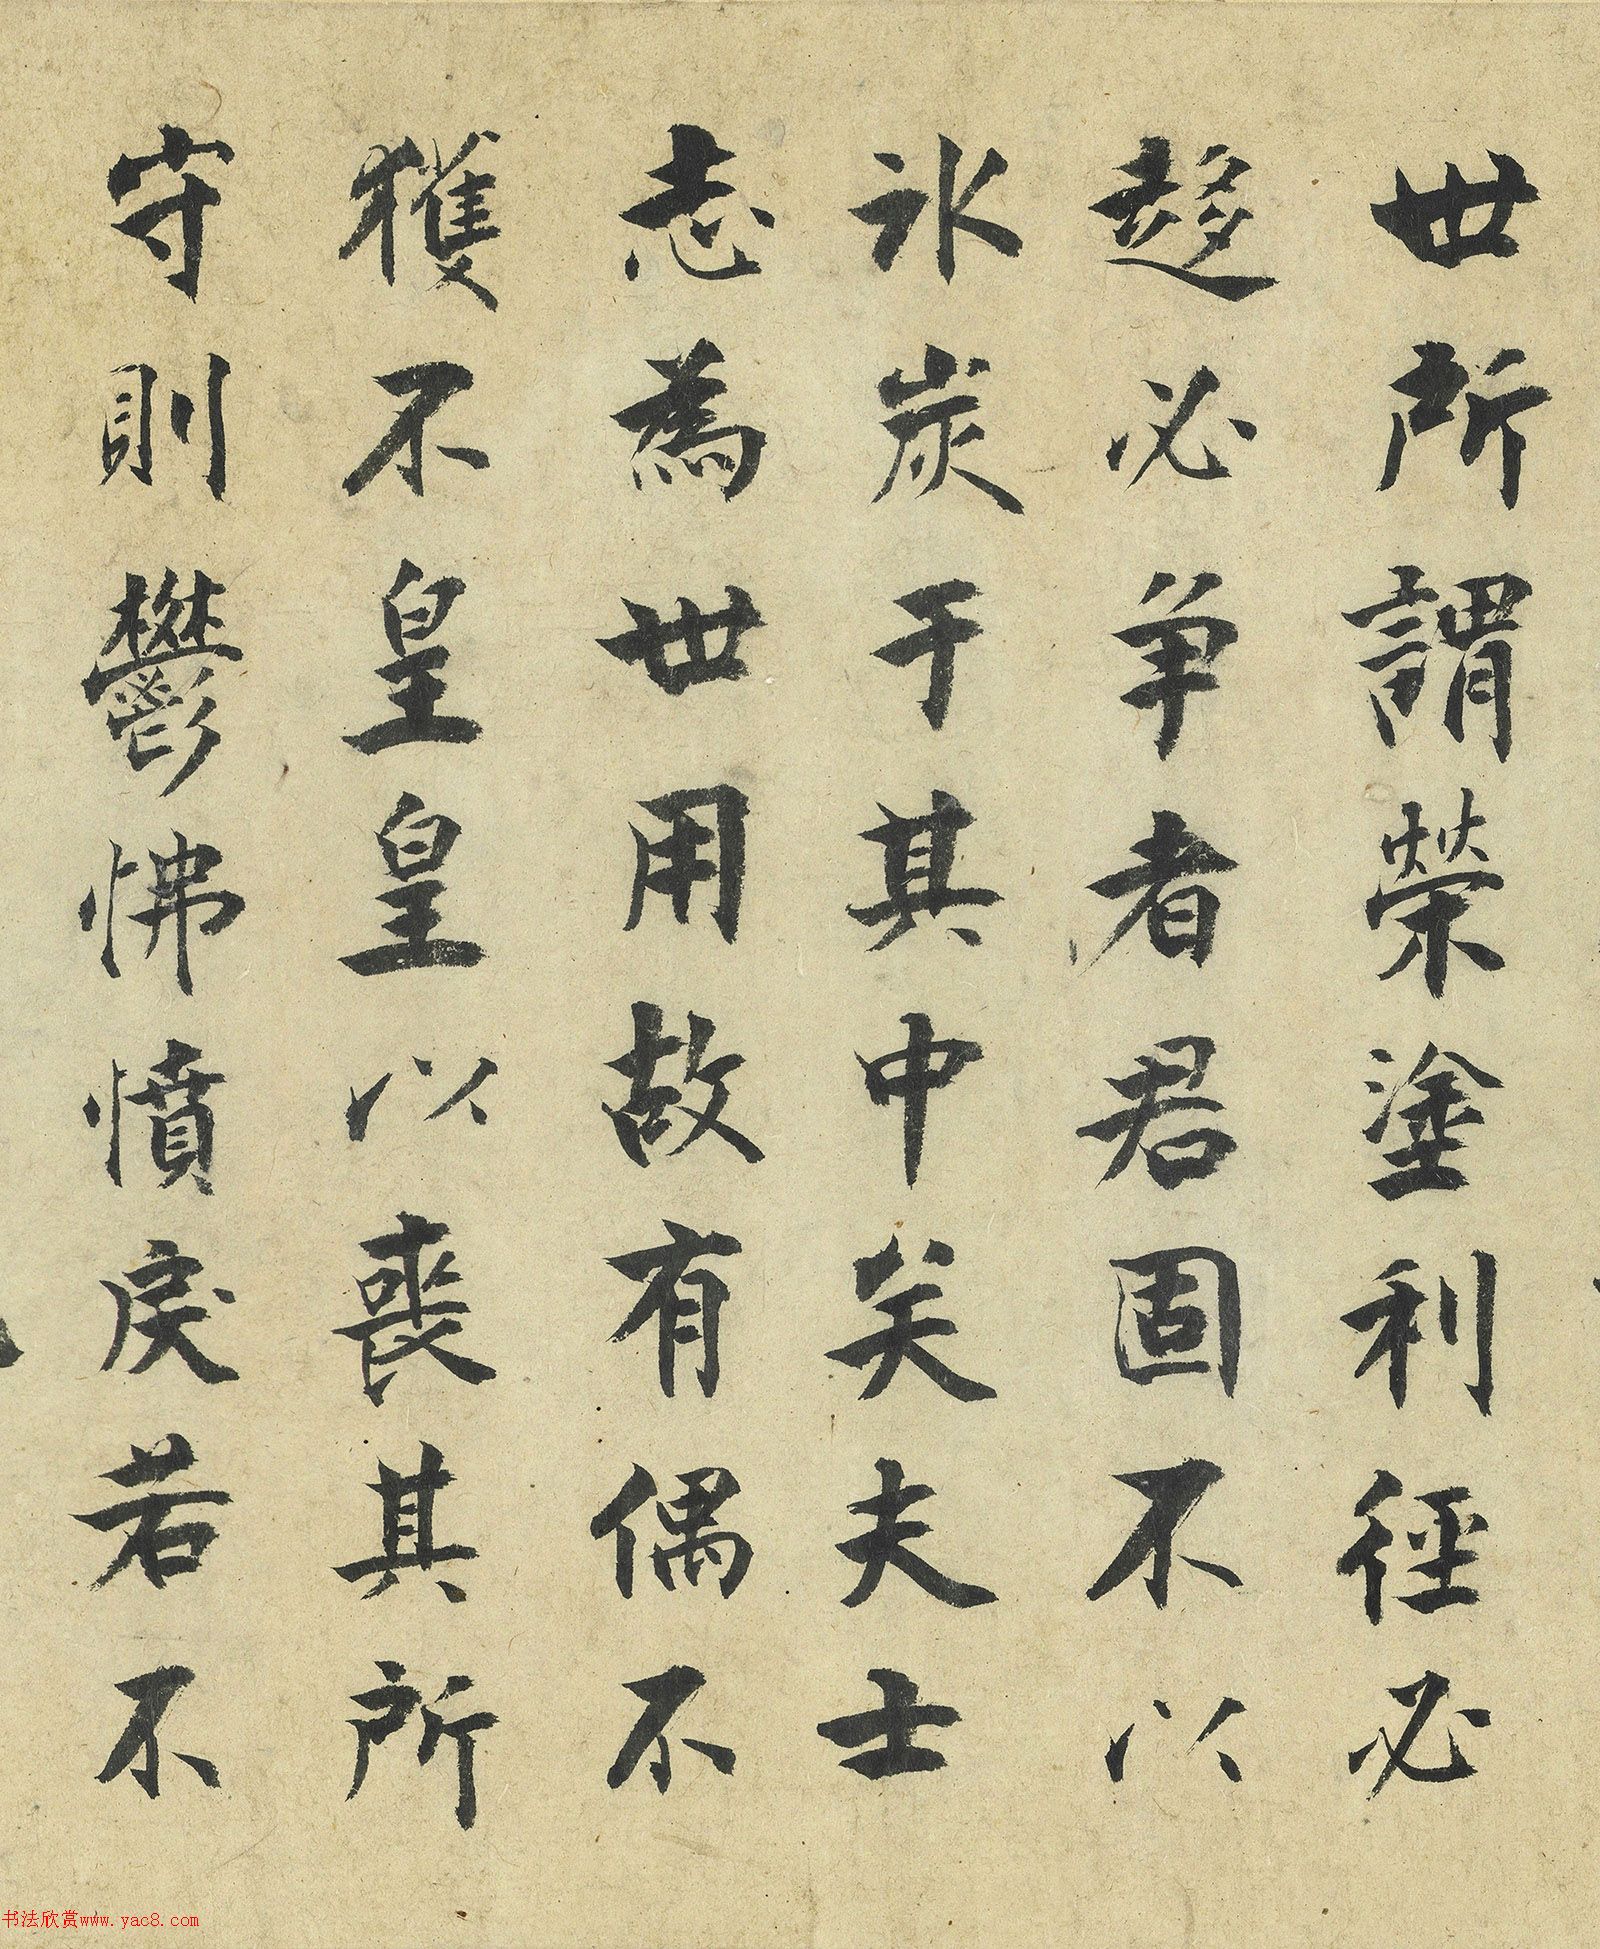 世所謂荣塗利徑必
趍必争者君固不以
氷炭于其中矣夫士
志為世用故有偶不
獲不皇皇以喪其所
守則鬱怫憤戾若不
书法欣赏www.yac8.com